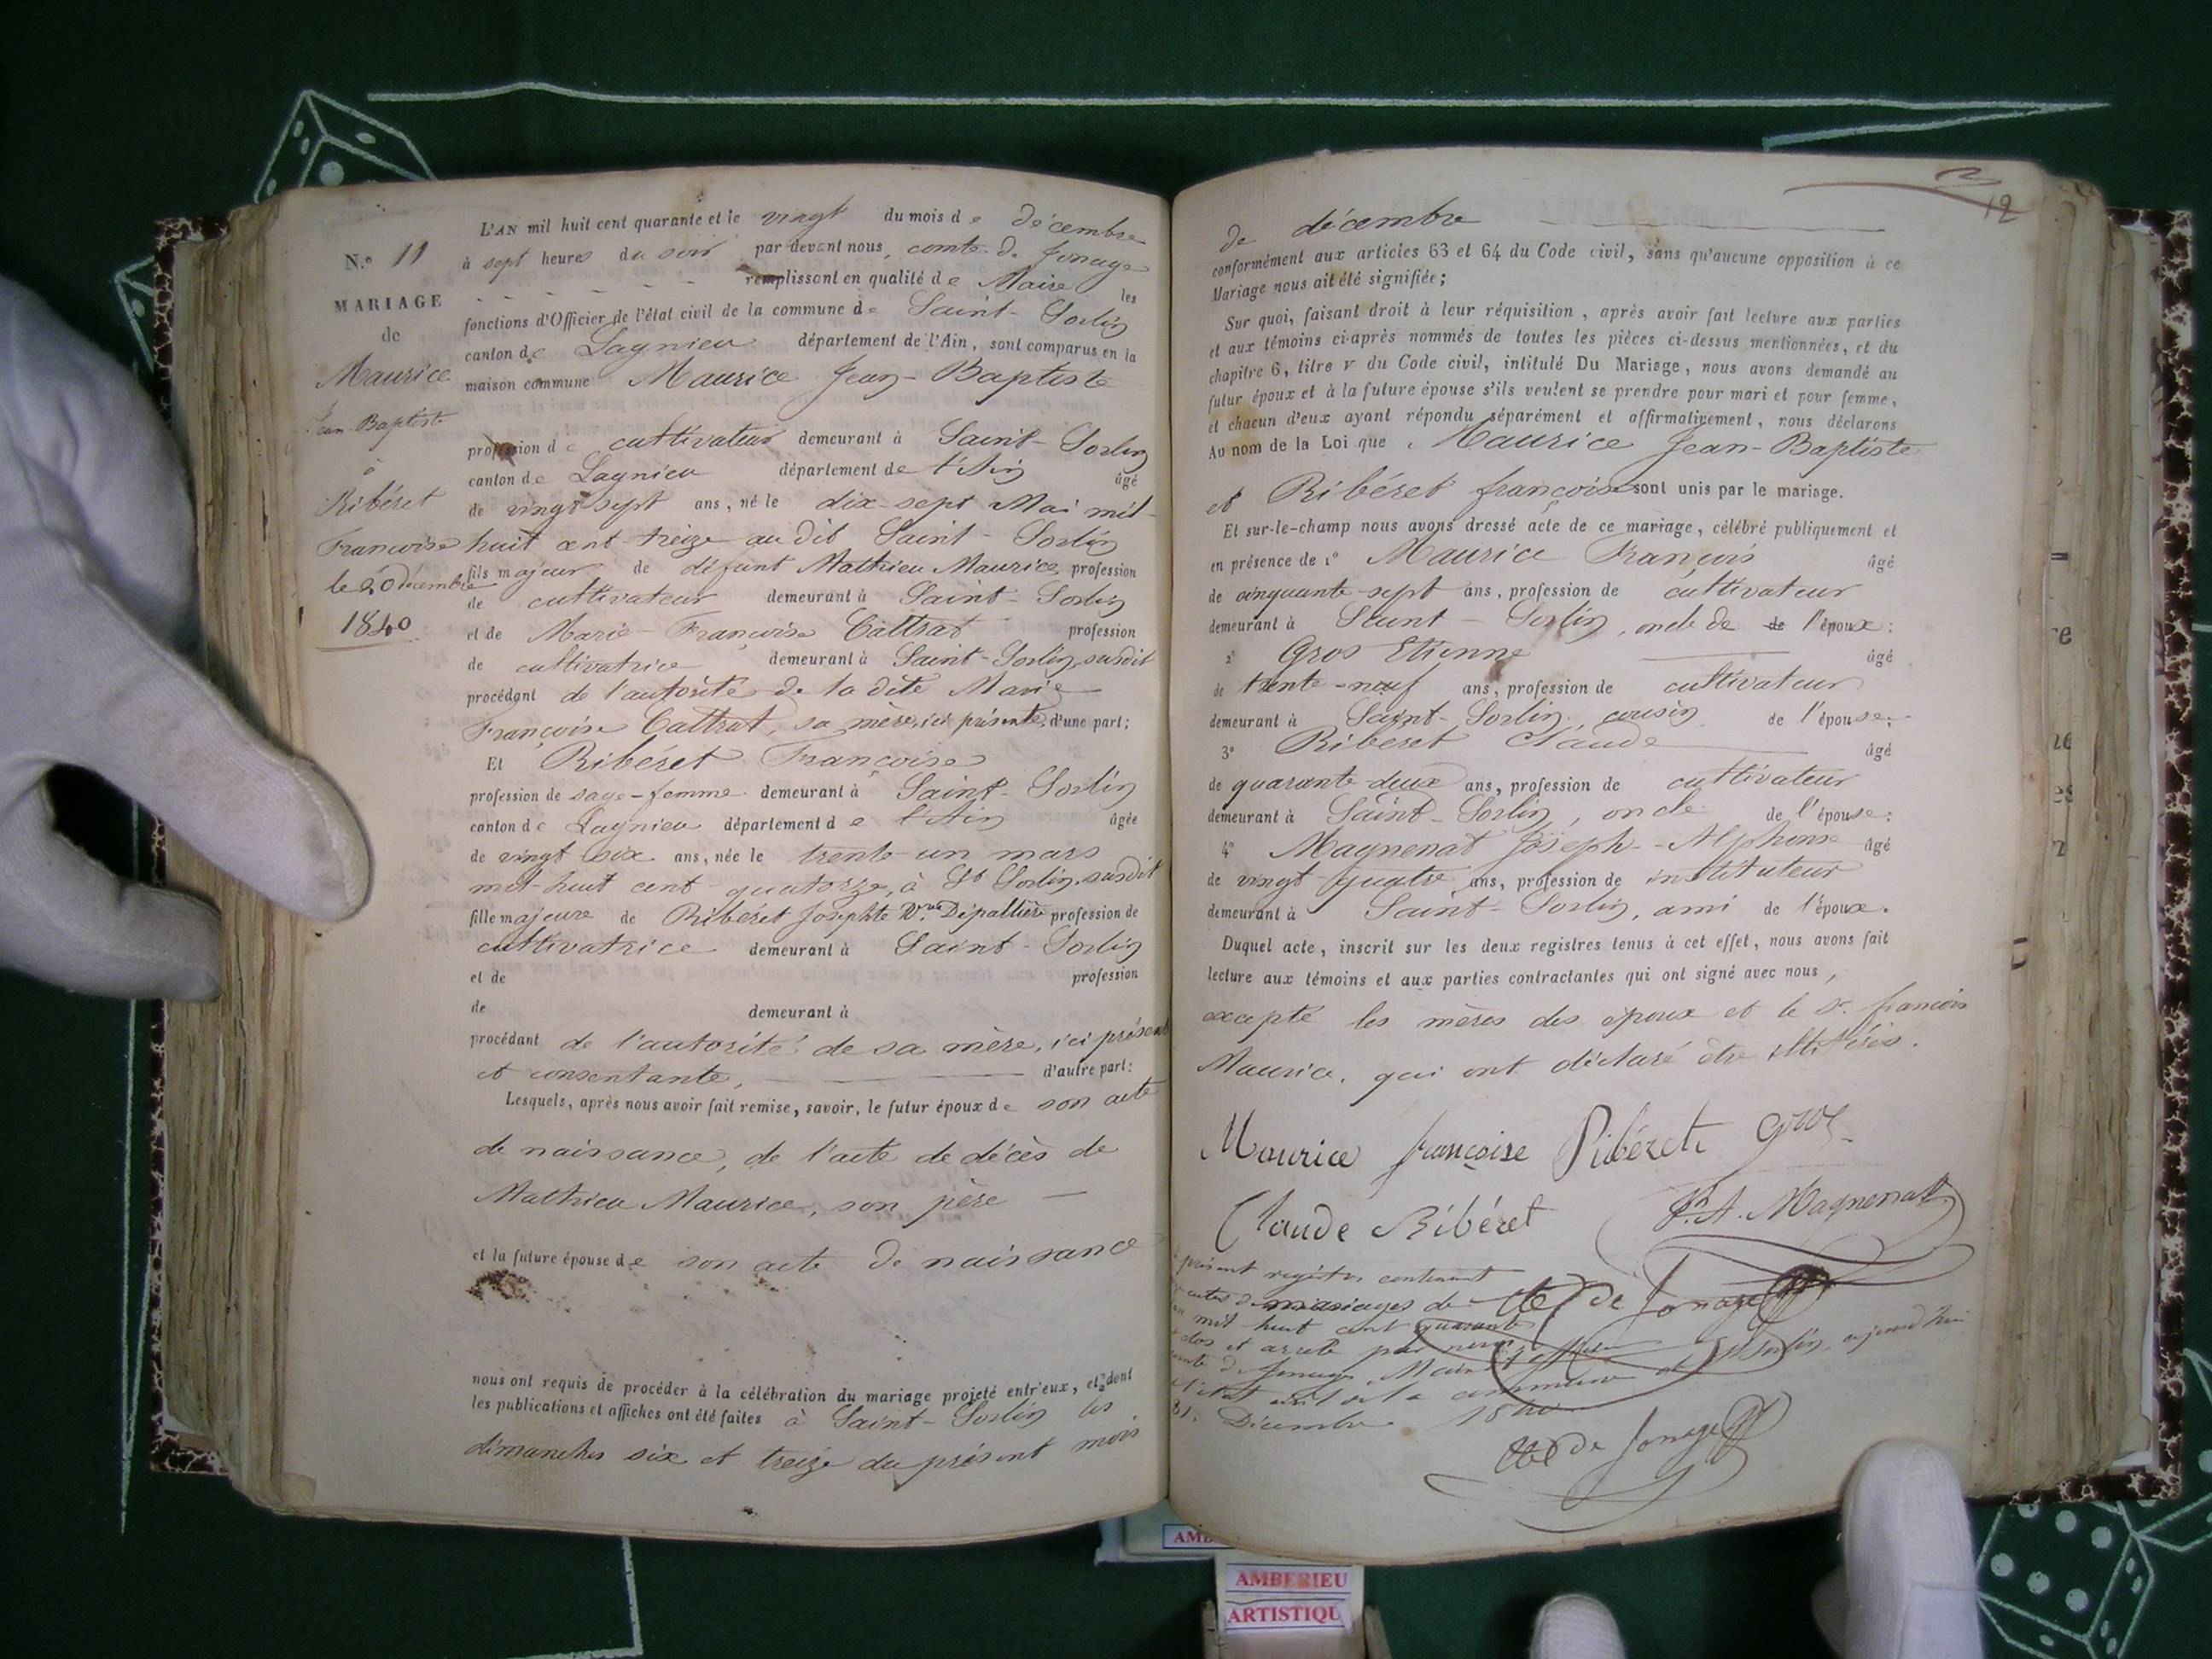 N.o 11
MARIAGE
de
Maurice
Jean Baptiste
à
Ribéret
Françoise
le 20 décembre
1840
L'AN mil huit cent quarante et le vingt du mois de décembre
à sept heures du soir par devant nous, comte de Jonage
remplissant en qualité de Maire les
fonctions d'Officier de l'état civil de la commune de Saint-Sorlin
canton de Lagnieu département de l'Ain, sont comparus en la
maison commune Maurice Jean-Baptiste
profession de cultivateur demeurant à Saint-Sorlin
canton de Lagnieu département de l'Ain âgé
de vingt sept ans, né le dix-sept Mai mil-
huit cent treize au dit Saint-Sorlin
fils majeur de défunt Mathieu Maurice, profession
de cultivateur demeurant à Saint-Sorlin
et de Marie-Françoise Cattrat profession
de cultivatrice demeurant à Saint-Sorlin, susdit
procédant de l'autorité de la dite Marie
Françoise Cattrat, sa mère, ici présente, d'une part;
Et Ribéret Françoise
profession de sage-femme demeurant à Saint-Sorlin
canton de Lagnieu département de l'Ain âgée
de vingt six ans, née le trente-un mars
mil-huit cent quatorze, à St Sorlin, susdit
fille majeure de Ribéret Josephte Vve Dépallière profession de
cultivatrice demeurant à Saint-Sorlin
et de profession
de demeurant à
procédant de l'autorité de sa mère, ici présente
et consentante, d'autre part:
Lesquels, après nous avoir fait remise, savoir, le futur époux de son acte
de naissance, de l'acte de décès de
Mathieu Maurice, son père —
et la future épouse de son acte de naissance
nous ont requis de procéder à la célébration du mariage projeté entr'eux, et dont
les publications et affiches ont été faites à Saint-Sorlin les
dimanches six et treize du présent mois
12
de décembre
conformément aux articles 63 et 64 du Code civil, sans qu'aucune opposition à ce
Mariage nous ait été signifiée;
Sur quoi, faisant droit à leur réquisition, après avoir fait lecture aux parties
et aux témoins ci-après nommés de toutes les pièces ci-dessus mentionnées, et du
chapitre 6, titre v du Code civil, intitulé Du Mariage, nous avons demandé au
futur époux et à la future épouse s'ils veulent se prendre pour mari et pour femme,
et chacun d'eux ayant répondu séparément et affirmativement, nous déclarons
Au nom de la Loi que Maurice Jean-Baptiste
et Ribéret françoise sont unis par le mariage.
Et sur-le-champ nous avons dressé acte de ce mariage, célébré publiquement et
en présence de 1° Maurice François âgé
de cinquante-sept ans, profession de cultivateur
demeurant à Saint-Sorlin, oncle de de l'époux:
2° Gros Etienne âgé
de trente-neuf ans, profession de cultivateur
demeurant à Saint-Sorlin, cousin de l'épouse;
3° Ribéret Claude âgé
de quarante-deux ans, profession de cultivateur
demeurant à Saint-Sorlin, oncle de l'épouse:
4° Magnenat Joseph-Alphonse âgé
de vingt-quatre ans, profession de instituteur
demeurant à Saint-Sorlin, ami de l'époux.
Duquel acte, inscrit sur les deux registres tenus à cet effet, nous avons fait
lecture aux témoins et aux parties contractantes qui ont signé avec nous,
excepté les mères des époux et le Sr. françois
Maurice, qui ont déclaré être illitérés.
Maurice françoise Ribéret gros
Claude Ribéret J.h A. Magnenat
présent registre contenant
actes de mariages de Cte de Jonage
mil-huit cent quarante
clos et arrêté par nous
de Jonage, Maire et officier
l'état civil de la commune de St Sorlin, aujourd'hui
31, Décembre 1840
Cte de Jonage
AMBERIEU
ARTISTIQU